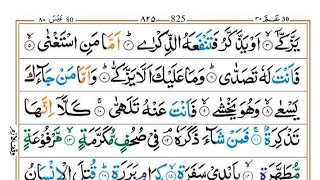 عَبَسَ ٨٠ 80 ٨٣٥ 825 عَمَّ ٣٠ 30
يَزَّكّٰۤى ۙ﴿۳﴾ اَوۡ يَذَّكَّرُ فَتَنۡفَعَهُ الذِّكۡرٰىؕ ﴿۴﴾ اَمَّا مَنِ اسۡتَغۡنٰىۙ ﴿۵﴾
فَاَنۡتَ لَهٗ تَصَدّٰىؕ ﴿۶﴾ وَمَا عَلَيۡكَ اَلَّا يَزَّكّٰىؕ ﴿۷﴾ وَاَمَّا مَنۡ جَآءَكَ
يَسۡعٰىۙ ﴿۸﴾ وَهُوَ يَخۡشٰىۙ ﴿۹﴾ فَاَنۡتَ عَنۡهُ تَلَهّٰىۚ ﴿۱۰﴾ كَلَّاۤ اِنَّهَا
تَذۡكِرَةٌ ۚ﴿۱۱﴾ فَمَنۡ شَآءَ ذَكَرَهٗۘ ﴿۱۲﴾ فِىۡ صُحُفٍ مُّكَرَّمَةٍۙ ﴿۱۳﴾ مَّرۡفُوۡعَةٍ
مُّطَهَّرَةٍۭ ۙ﴿۱۴﴾ بِاَيۡدِىۡ سَفَرَةٍۙ ﴿۱۵﴾ كِرَامٍۭ بَرَرَةٍؕ ﴿۱۶﴾ قُتِلَ الۡاِنۡسَانُ